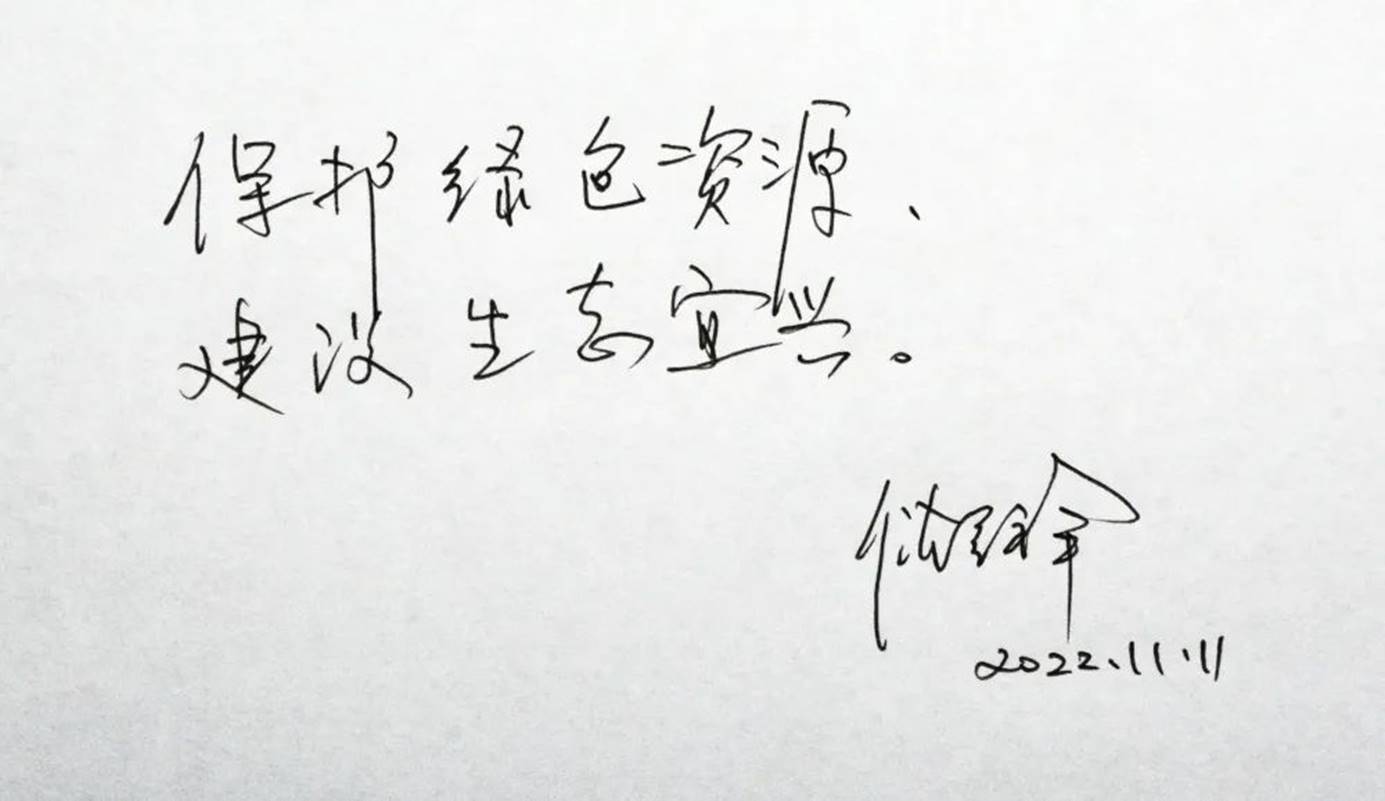 保护绿色资源、
建设生态宜兴。
2022.11.11